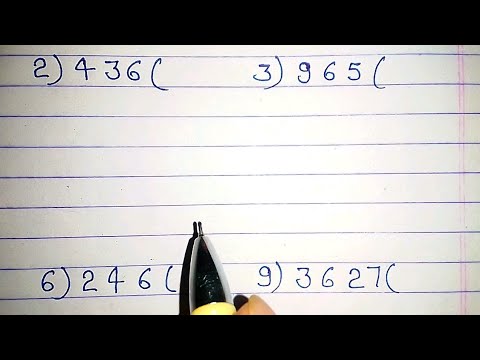 2) 436 ( 3) 965 (
6) 246 ( 9) 3627 (